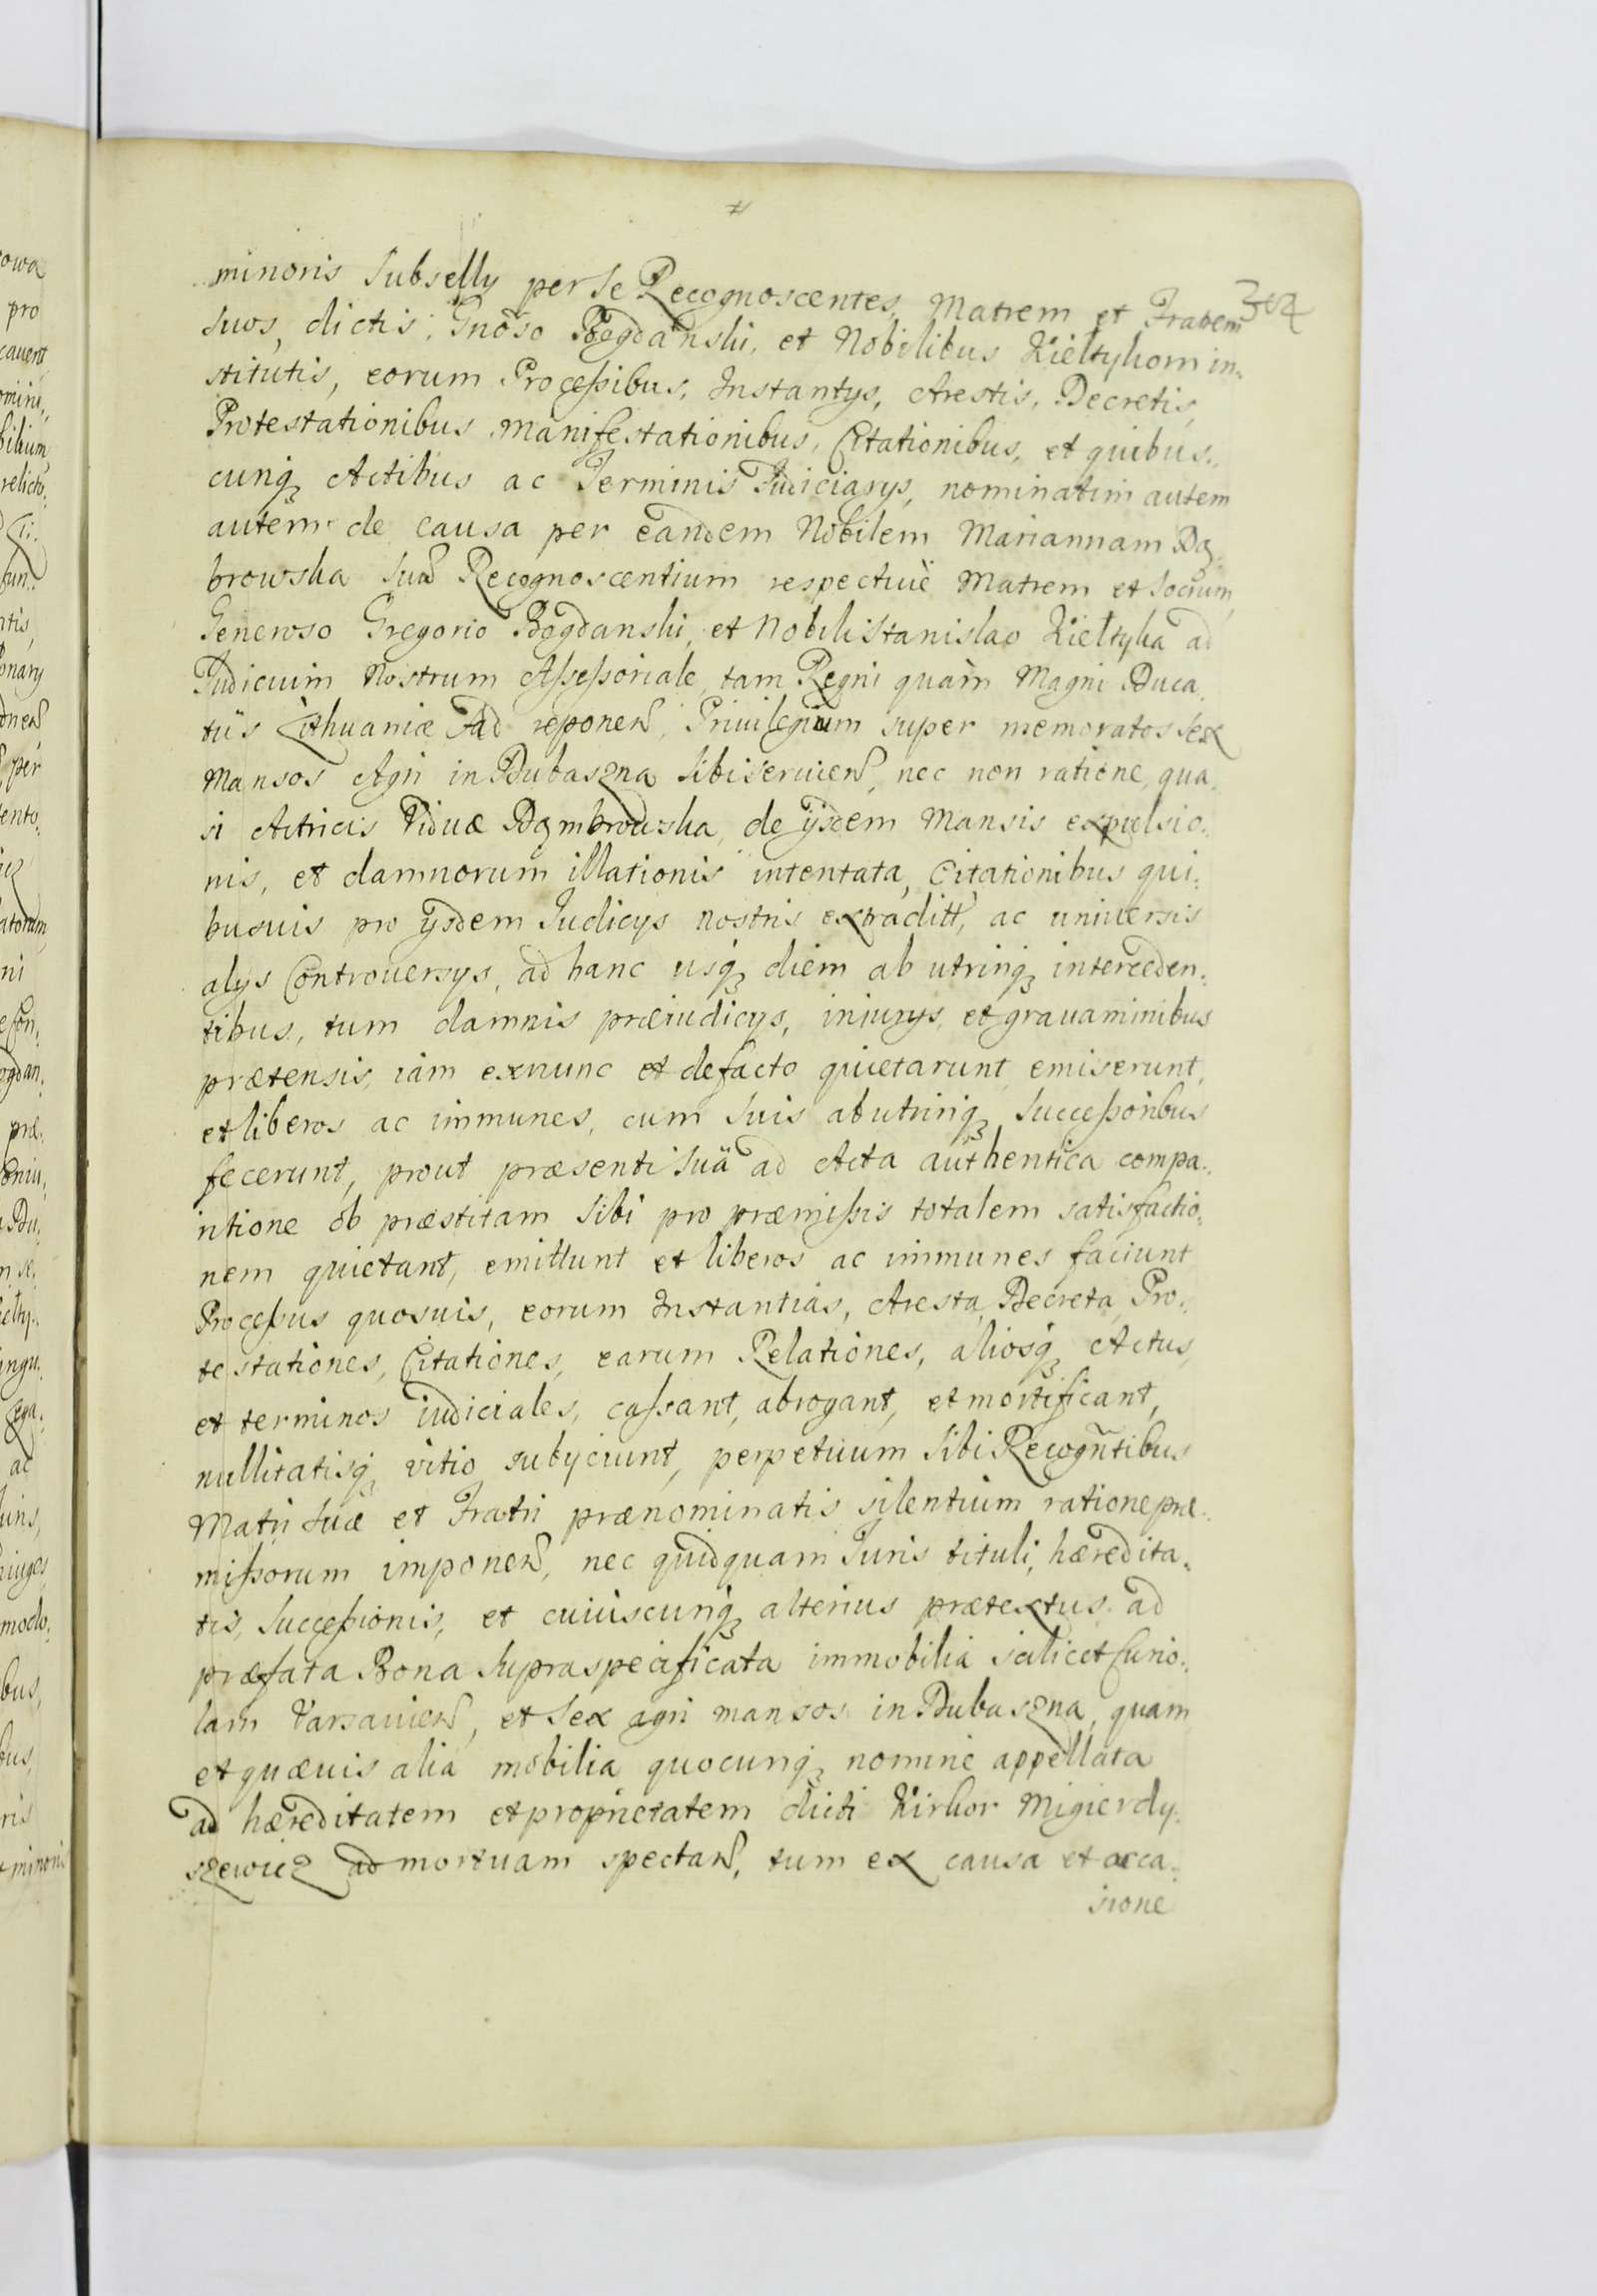 minoris Subselly per se Recognoscentes, Matrem et Fratrem
suos, dictis, Gnoso Bogdanski, et Nobilibus Kieltykom in-
stitutis, eorum Processibus, Instantys, Arestis, Decretis,
Protestationibus, Manifestationibus, Citationibus, et quibus,,
cunq3 Actibus ac Terminis Judiciarys, nominatim autem
autem de causa per eandem Nobilem Mariannam Dą-
browska suā Recognoscentium respectivè Matrem et Socrum,
Generoso Gregorio Bogdanski, et Nobili Stanislao Kieltyka ad
Judicium Nostrum Assessoriale, tam Regni quàm Magni Duca-
tûs Lithuaniæ Ad reponeñ, Privilegium super memoratos sex
Mansos Agri in Dubaszna sibi servieñ, nec non ratione, qua-
si Actricis Viduæ Dąmbrowska, de ijsdem Mansis expulsio-
nis, et damnorum illationis intentata, Citationibus qui-
busuis pro ijsdem Judicys nostris extraditt, ac universis
alys Controversys, ad hanc usq3 diem ab utrinq3 interceden-
tibus, tum damnis præiudicys, iniurys, et gravaminibus
prætensis, iàm exnunc et defacto quietarunt, emiserunt,
et liberos ac immunes, cum suis ab utrinq3 Successoribus
fecerunt, prout præsenti suâ ad Acta authentica compa-
ritione ob præstitam sibi pro præmissis totalem satisfactio-
nem quietant, emittunt et liberos ac immunes faciunt
Processus quosuis, eorum Instantias, Aresta, Decreta, Pro-
testationes, Citationes, earum Relationes, aliosq3 Actus,
et terminos iudiciales, cassant, abrogant, et mortificant,
nullitatisq3 vitio subijciunt, perpetuum sibi Recogñtibus
Matri suæ et Fratri prænominatis silentium ratione præ-
missorum imponeñ, nec quidquam Juris tituli, hæredita-
tis, Successionis, et cuiuscunq3 alterius prætextus ad
præfata Bona supraspecificata immobilia scilicet Curio-
lam Varsavieñ, et sex agri mansos in Dubaszna, quam
et quævis alia mobilia quocunq3 nomine appellata
ad hæreditatem et proprietatem dicti Kirkor Migierdy-
szewicz ad mortuam spectañ, tum ex causa et occa-
sione